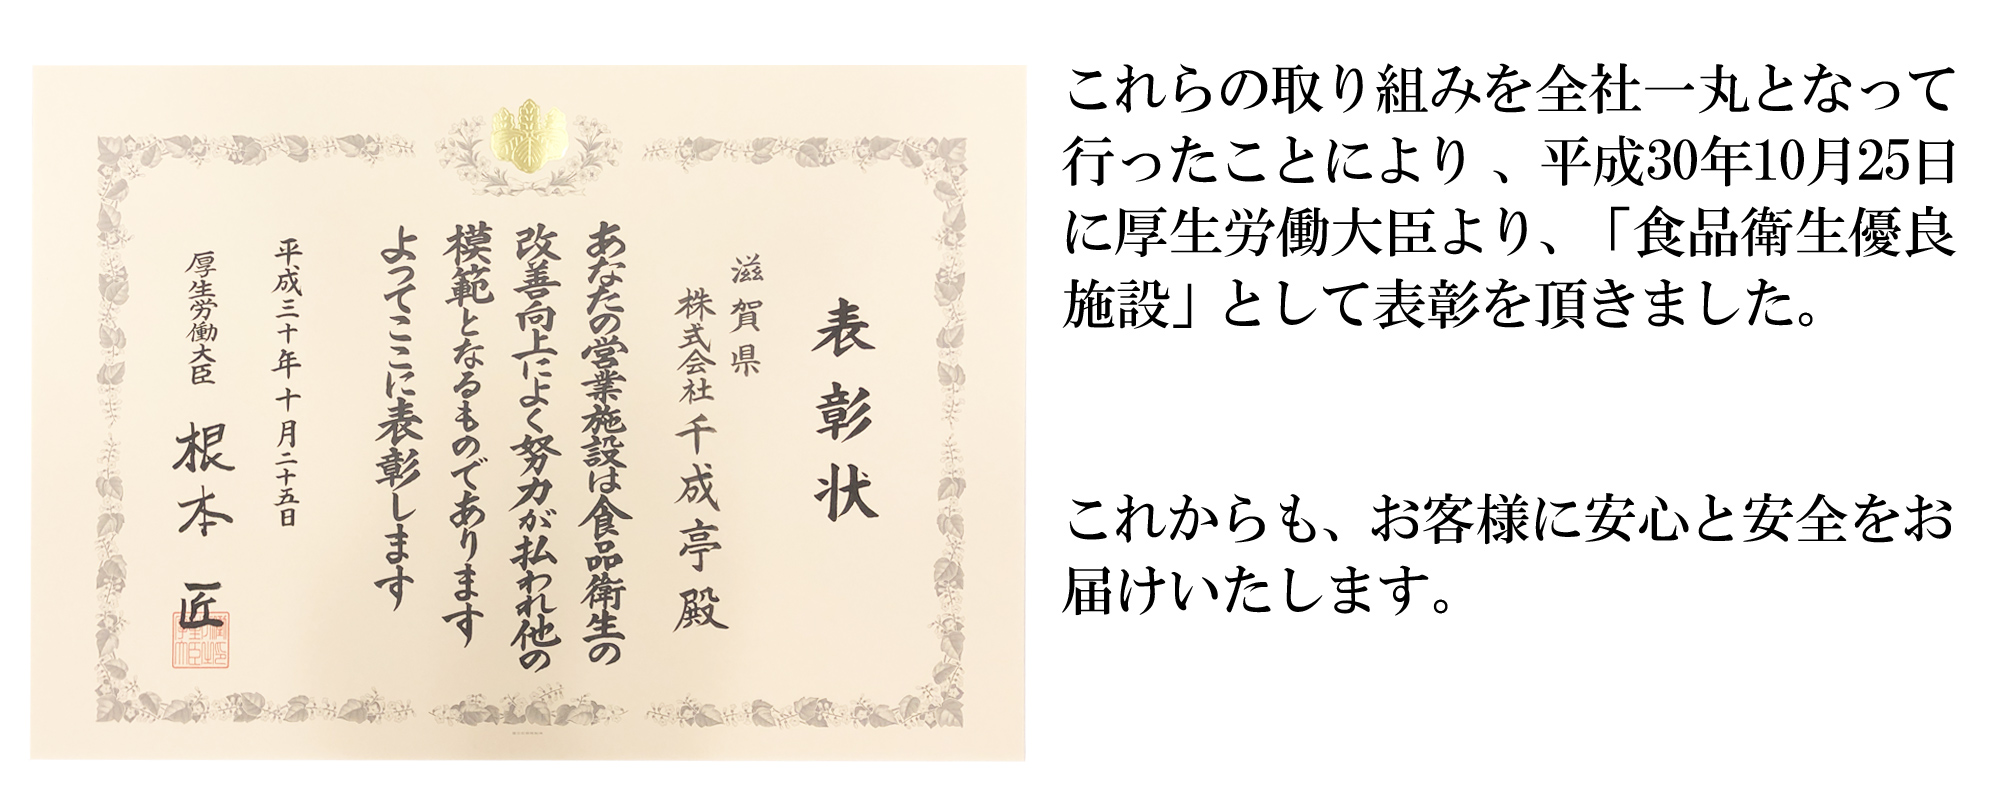 表彰状
滋賀県
株式会社千成亭殿
あなたの営業施設は食品衛生の
改善向上によく努力が払われ他の
模範となるものであります
よってここに表彰します
平成三十年十月二十五日
厚生労働大臣 根本匠
これらの取り組みを全社一丸となって
行ったことにより、平成30年10月25日
に厚生労働大臣より、「食品衛生優良
施設」として表彰を頂きました。
これからも、お客様に安心と安全をお
届けいたします。